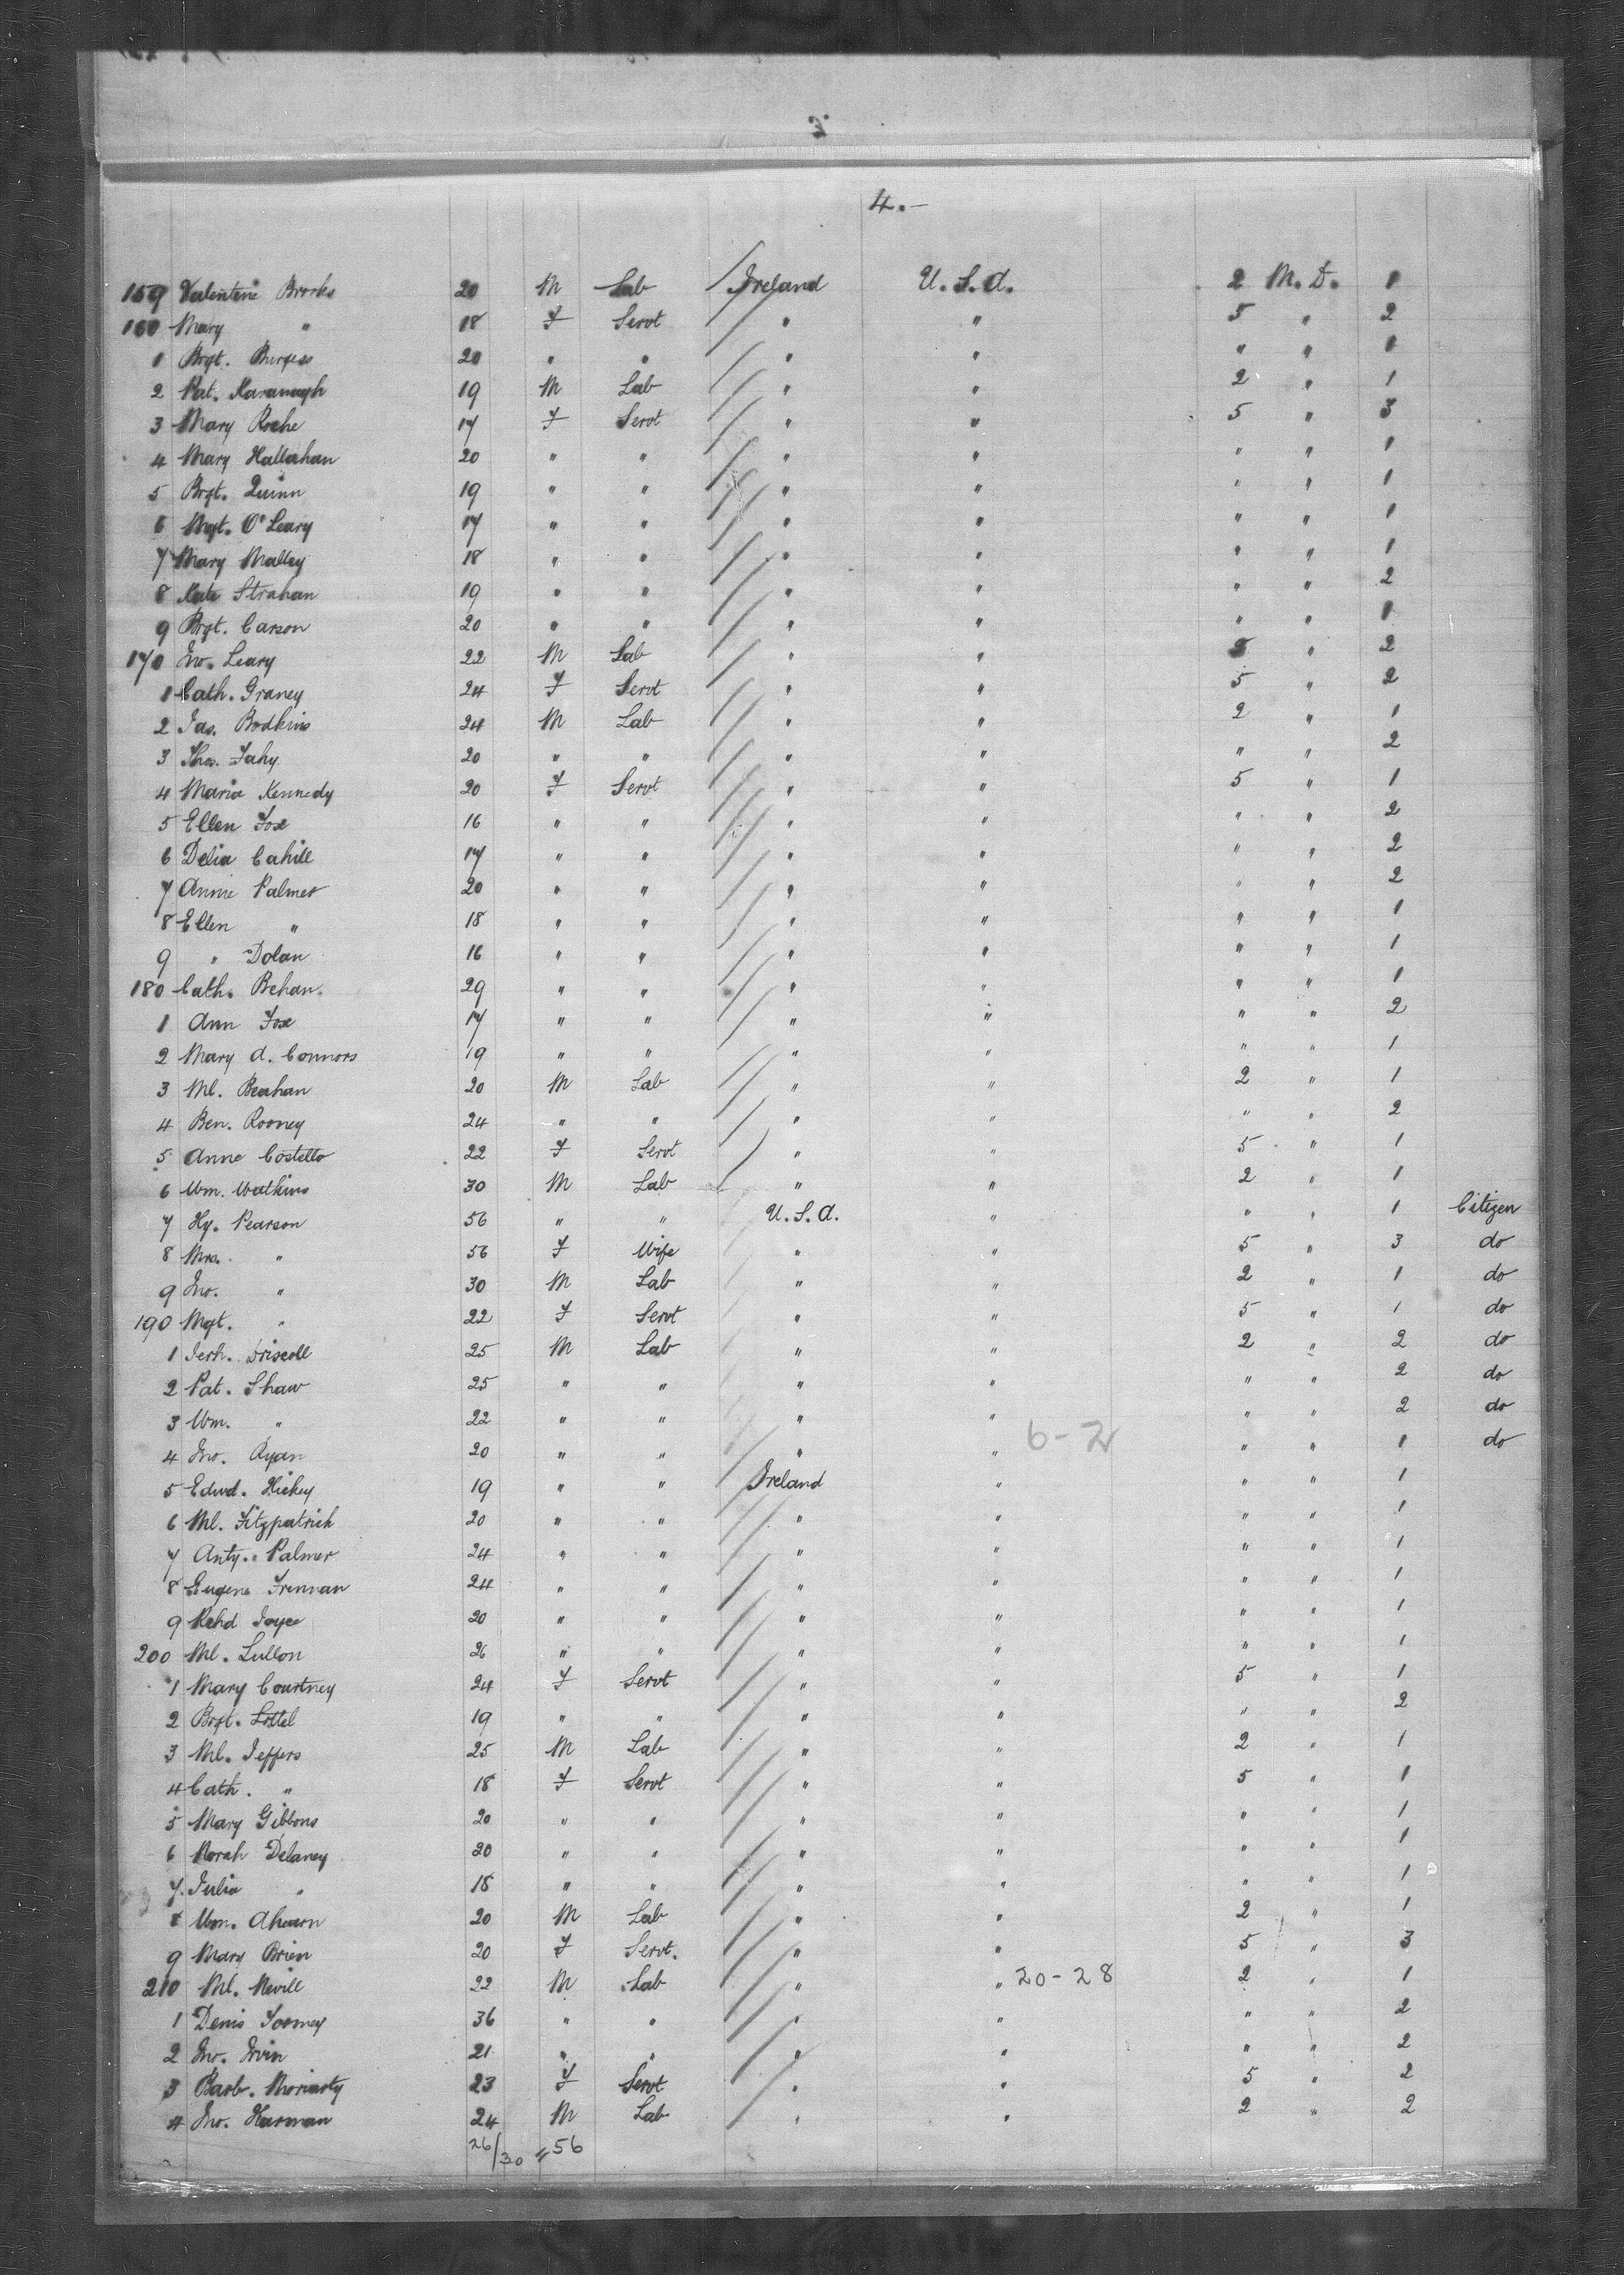 4.-
159 Valentine Brooks 20 M Lab Ireland U.S.A. 2 M.D. 1
160 Mary " 18 F Servt " " 5 " 2
1 Brgt. Burgess 20 " " " " " " 1
2 Pat. Kavanagh 19 M Lab " " 2 " 1
3 Mary Roche 17 F Servt " " 5 " 3
4 Mary Hallahan 20 " " " " " " 1
5 Brgt. Quinn 19 " " " " " " 1
6 Mgt. O'Leary 17 " " " " " " 1
7 Mary Malley 18 " " " " " " 1
8 Kate Strahan 19 " " " " " " 2
9 Brgt. Carson 20 " " " " " " 1
170 Jno. Leary 22 M Lab " " 2 " 2
1 Cath. Graney 24 F Servt " " 5 " 2
2 Jas. Bodkins 24 M Lab " " 2 " 1
3 Thos. Fahy 20 " " " " " " 2
4 Maria Kennedy 20 F Servt " " 5 " 1
5 Ellen Fox 16 " " " " " " 2
6 Delia Cahill 17 " " " " " " 2
7 Annie Palmer 20 " " " " " " 2
8 Ellen " 18 " " " " " " 1
9 " Dolan 16 " " " " " " 1
180 Cath. Behan. 29 " " " " " " 1
1 Ann Fox 17 " " " " " " 2
2 Mary A. Connors 19 " " " " " " 1
3 Ml. Beahan 20 M Lab " " 2 " 1
4 Ben. Rooney 24 " " " " " " 2
5 Anne Costello 22 F Servt " " 5 " 1
6 Wm. Watkins 30 M Lab " " 2 " 1
7 Hy. Pearson 56 " " U.S.A. " " " 1 Citizen
8 Mrs. " 56 F Wife " " 5 " 3 do
9 Jno. " 30 M Lab " " 2 " 1 do
190 Mgt. " 22 F Servt " " 5 " 1 do
1 Jerh. Driscoll 25 M Lab " " 2 " 2 do
2 Pat. Shaw 25 " " " " " " 2 do
3 Wm. " 22 " " " " " " 2 do
4 Jno. Ryan 20 " " " " 6-2 " " 1 do
5 Edwd. Hickey 19 " " Ireland " " " 1
6 Ml. Fitzpatrick 20 " " " " " " 1
7 Anty. Palmer 24 " " " " " " 1
8 Eugene Frennan 24 " " " " " " 1
9 Rchd Joyce 20 " " " " " " 1
200 Ml. Lullon 26 " " " " " " 1
1 Mary Courtney 24 F Servt " " 5 " 1
2 Brgt. Lottel 19 " " " " " " 2
3 Ml. Jeffers 25 M Lab " " 2 " 1
4 Cath. " 18 F Servt " " 5 " 1
5 Mary Gibbons 20 " " " " " " 1
6 Norah Delaney 20 " " " " " " 1
7 Julia " 18 " " " " " " 1
8 Wm. Ahearn 20 M Lab " " 2 " 1
9 Mary Brien 20 F Servt. " " 5 " 3
210 Ml. Nevill 22 M Lab " " 20-28 2 " 1
1 Denis Toomey 36 " " " " " " 2
2 Jno. Irvin 21 " " " " " " 2
3 Barb. Moriarty 23 F Servt " " 5 " 2
4 Jno. Harman 24 M Lab " " 2 " 2
26/30 " 56